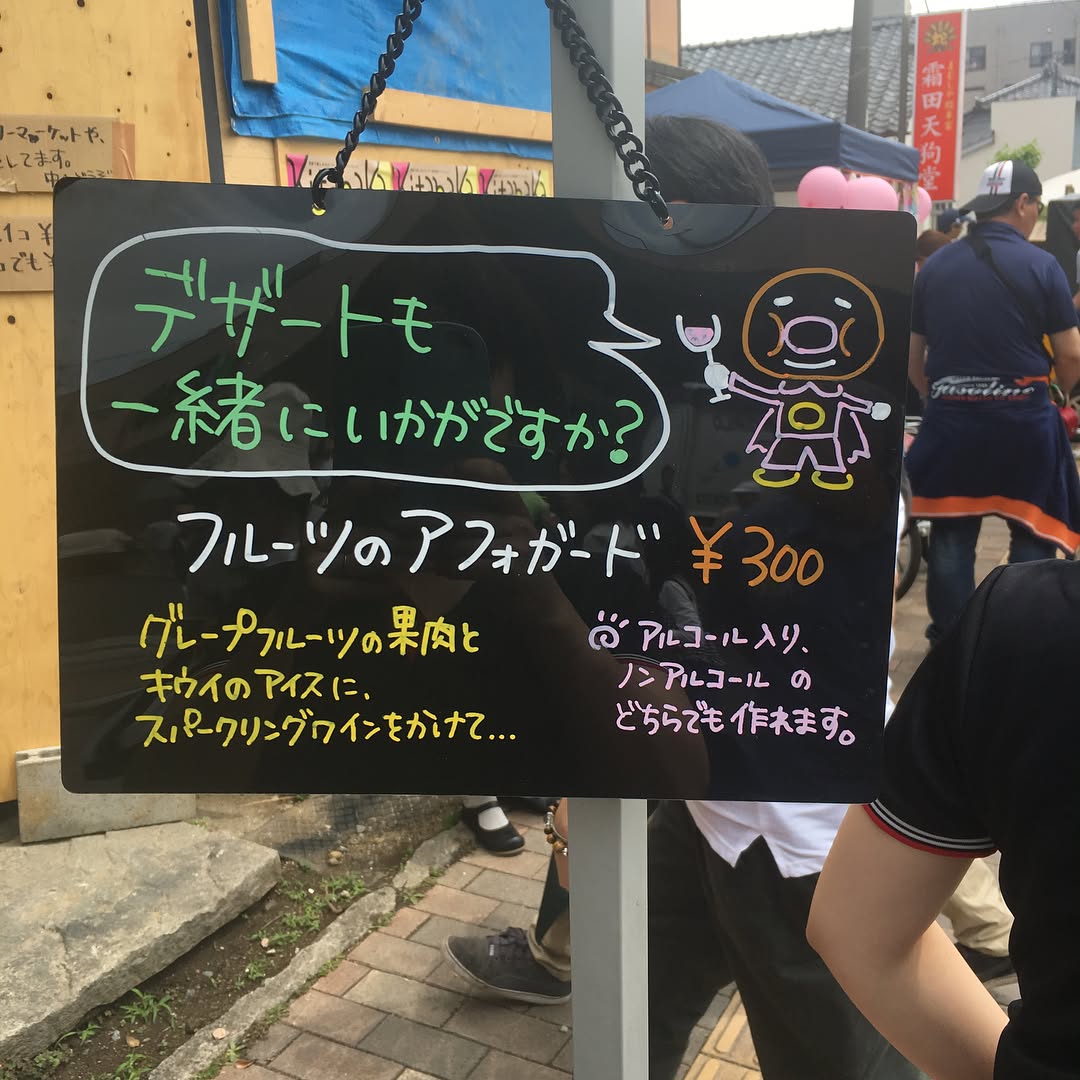 デザートも
一緒にいかがですか?
フルーツのアフォガード ¥300
グレープフルーツの果肉と
キウイのアイスに、
スパークリングワインをかけて...
アルコール入り、
ノンアルコールの
どちらでも作れます。
霜田天狗堂
ーマーケットや、
してます。
でも